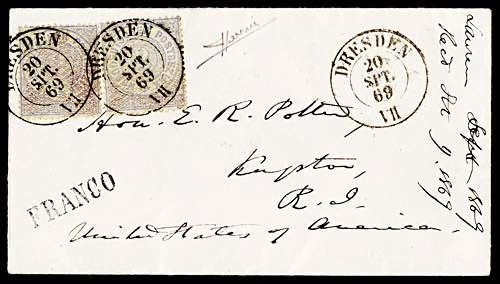 DRESDEN
20
SPT.
69
VII
DRESDEN
20
SPT.
69
VII
DRESDEN
20
SPT.
69
VII
Hon. E. R. Potter,
Kingston,
R. I.
United States of America.
FRANCO
Sept 1869
Recd Oct 9. 1869